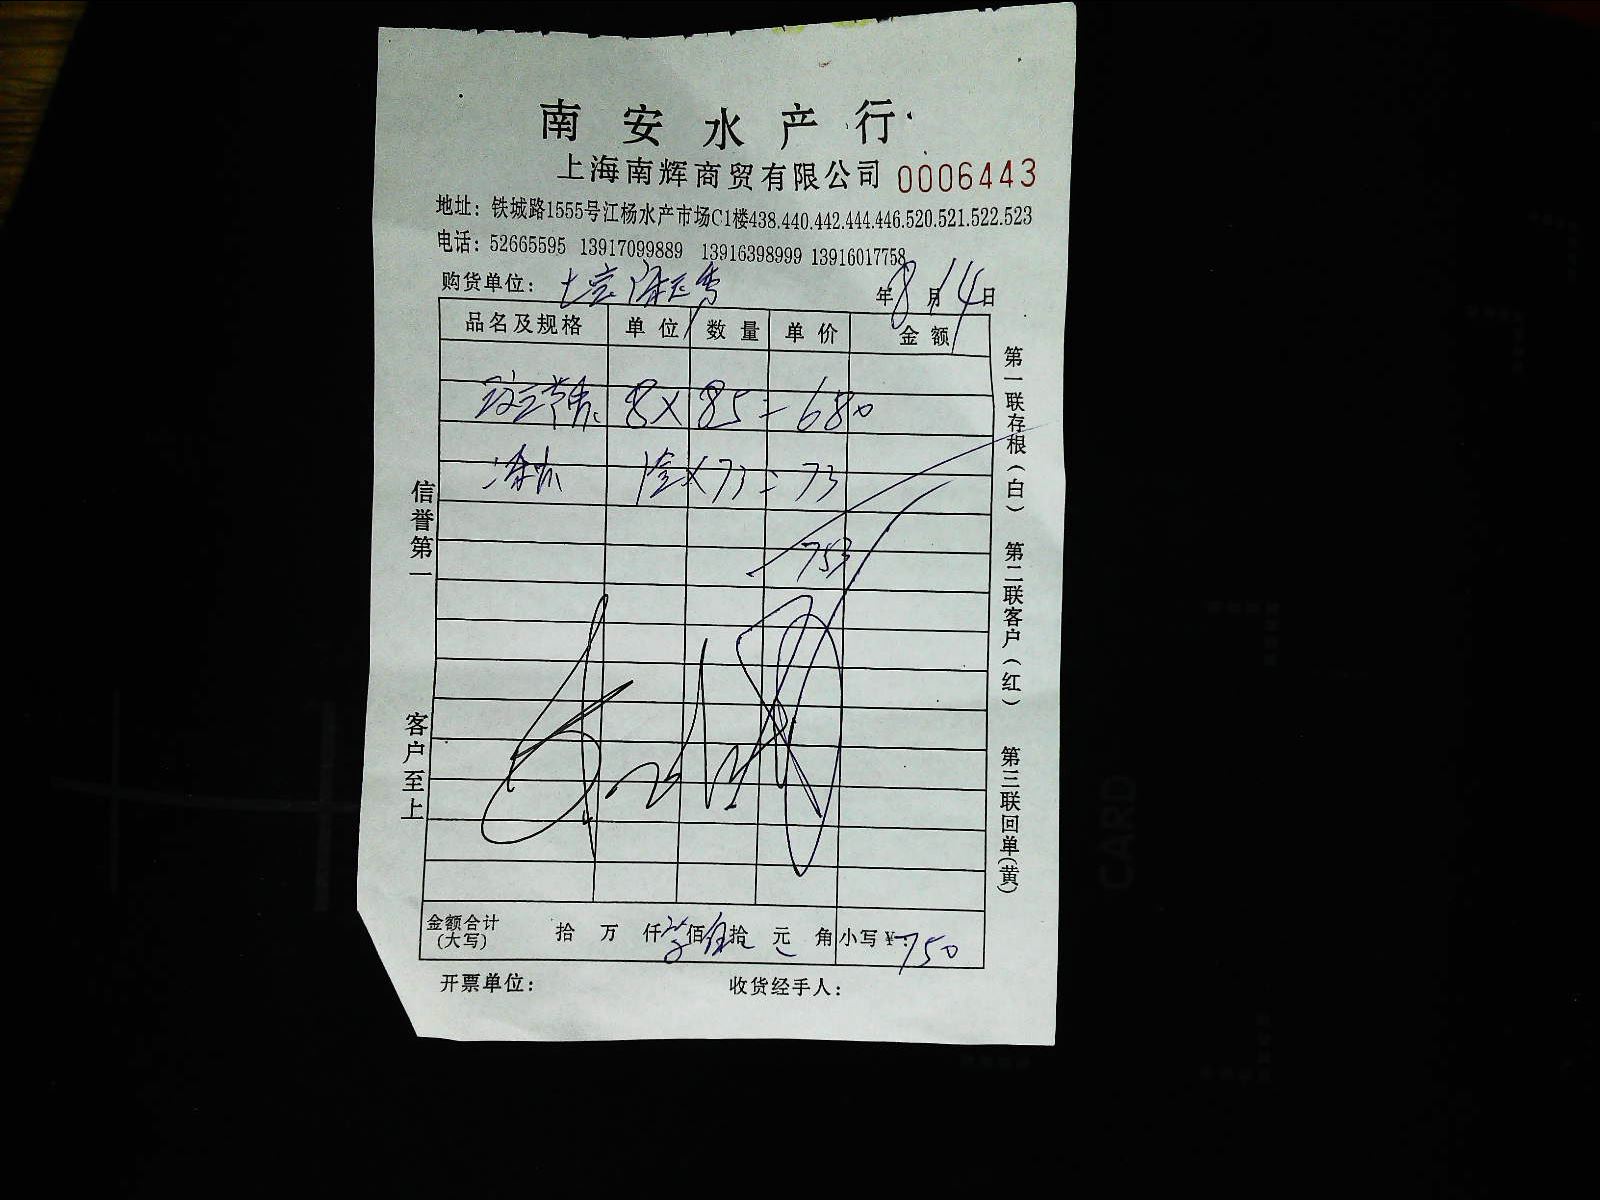 南安水产行
上海南辉商贸有限公司 0006443
地址：铁城路1555号江杨水产市场C1楼438.440.442.444.446.520.521.522.523
电话：52665595 13917099889 13916398999 13916017758
购货单位： 年8月14日
品名及规格 单位 数量 单价 金额
8X 85=680
X73=73
753
金额合计(大写) 拾 万 仟 佰 拾 元 角 小写￥750
开票单位： 收货经手人：
信誉第一
客户至上
第一联存根(白) 第二联客户(红) 第三联回单(黄)
CARD